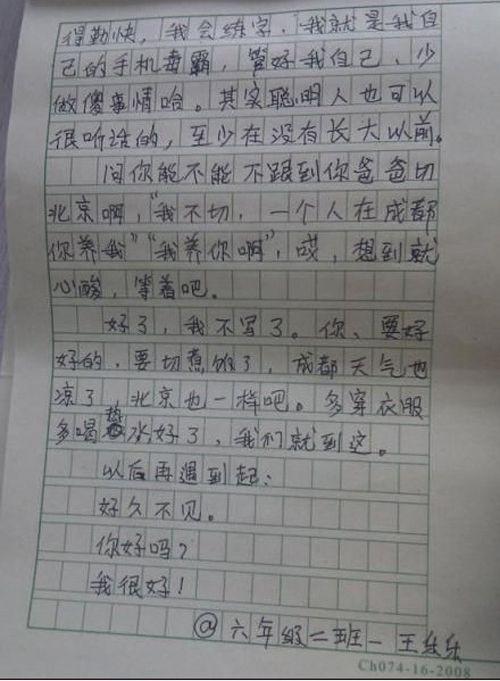 得勤快，我会练字，"我就是我自
己的手机毒霸，管好我自己，少
做傻事情哈。其实聪明人也可以
很听话的，至少在没有长大以前。
问你能不能不跟到你爸爸切
北京啊，"我不切，一个人在成都
你养我""我养你啊"，哎，想到就
心酸，等着吧。
好了，我不写了。你、要好
好的，要切煮饭了，成都天气也
凉了，北京也一样吧。多穿衣服
多喝热水好了，我们就到这。
以后再遇到起：
好久不见。
你好吗？
我很好！
@六年级二班-王乐乐
Ch074-16-2008